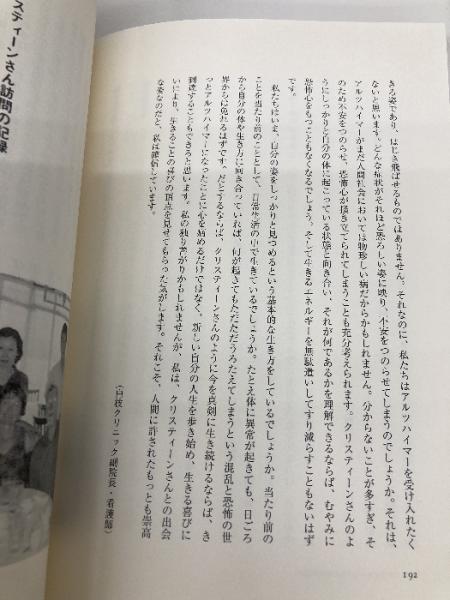 きる姿であり、はじき飛ばせるものではありません。それなのに、私たちはアルツハイマーを受け入れたく
ないと思います。どんな症状がそれほど恐ろしい姿に映り、不安をつのらせてしまうのでしょうか。それは、
アルツハイマーがまだ人間社会においては物珍しい病だからかもしれません。分からないことが多すぎ、そ
のため不安をつのらせ、恐怖心が掻き立てられてしまうことも充分考えられます。クリスティーンさんのよ
うにしっかりと自分の体に起こっている状態と向き合い、それが何であるかを理解できるならば、むやみに
恐怖心をもつこともなくなるでしょう。そして生きるエネルギーを無駄遣いしてすり減らすこともないはず
です。
私たちはいま、自分の姿をしっかりと見つめるという基本的な生き方をしているでしょうか。当たり前の
ことを当たり前のこととして、日常生活の中で生きているでしょうか。たとえ体に異常が起きても、日ごろ
から自分の体や生き方に向き合っていれば、何が起きてもただただうろたえてしまうという混乱と恐怖の世
界からは免れるはずです。だとするならば、クリスティーンさんのように今を真剣に生き続けるならば、き
っとアルツハイマーになったことに心を痛めるだけではなく、新しい自分の人生を歩き始め、生きる喜びに
到達することもできると思います。私の独り善がりかもしれませんが、私は、クリスティーンさんとの出会
いにより、生きることの喜びの頂点を見せてもらった気がします。それこそ、人間に許されたもっとも崇高
な姿なのだと、私は確信しています。
(戸枝クリニック副院長・看護師)
192
スティーンさん訪問の記録